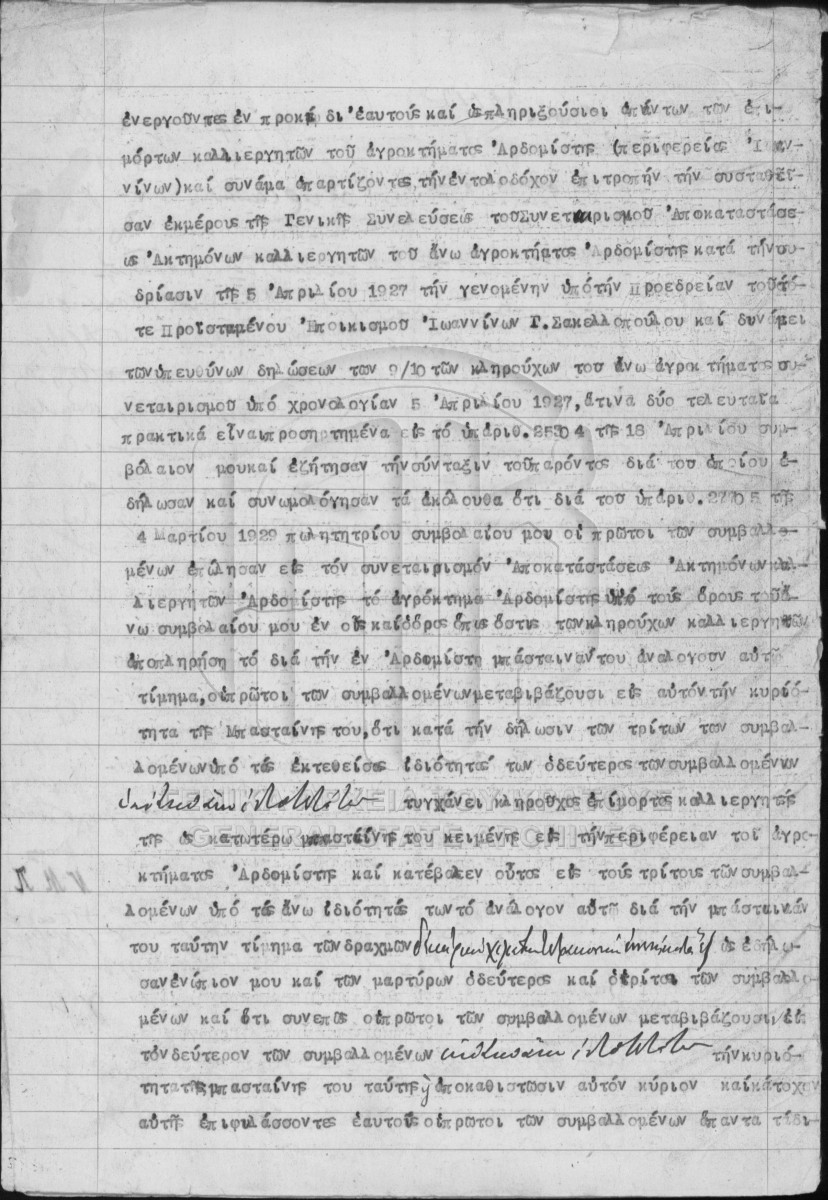 ἐνεργοῦντες ἐν προκ/ῳ δι'ἑαυτούς καί ὡς πληρεξούσιοι ἁπάντων τῶν ἐπι-
μόρτων καλλιεργητῶν τοῦ ἀγροκτήματος Ἀρδομίστης (περιφερείας Ἰωαν-
νίνων) καί συνάμα ἀπαρτίζοντες τήν ἐντολοδόχον ἐπιτροπήν τήν συσταθεῖ-
σαν ἐκμέρους τῆς Γενικῆς Συνελεύσεως τοῦ Συνεταιρισμοῦ Ἀποκαταστάσε-
ως Ἀκτημόνων καλλιεργητῶν τοῦ ἄνω ἀγροκτήματος Ἀρδομίστης κατά τήν συ-
δρίασιν τῆς 5 Ἀπριλίου 1927 τήν γενομένην ὑπό τήν Προεδρείαν τοῦ τό-
τε Προϊσταμένου Ἐποικισμοῦ Ἰωαννίνων Γ. Σακελλοπούλου καί δυνάμει
τῶν ὑπευθύνων δηλώσεων των 9/10 τῶν κληρούχων του ἄνω ἀγροκτήματος συ-
νεταιρισμοῦ ὑπό χρονολογίαν 5 Ἀπριλίου 1927, ἅτινα δύο τελευταῖα
πρακτικά εἶναι προσηρτημένα εἰς τό ὑπάριθ. 25304 τῆς 18 Ἀπριλίου συμ-
βόλαιον μου καί ἐζήτησαν τήν σύνταξιν τοῦ παρόντος διά του ὁποίου ἐ-
δήλωσαν καί συνωμολόγησαν τά ἀκόλουθα ὅτι διά του ὑπάριθ. 27705 τῆς
4 Μαρτίου 1929 πωλητητρίου συμβολαίου μου οἱ πρῶτοι των συμβαλλο-
μένων ἐπώλησαν εἰς τόν συνεταιρισμόν Ἀποκατάστάσεως Ἀκτημόνων καλ-
λιεργητῶν Ἀρδομίστης τό ἀγρόκτημα Ἀρδομίστης ὑπό τούς ὅρους τοῦ ἄ-
νω συμβολαίου μου ἐν οἷς καί ὁ ὅρος ὅπως ὅστις τῶν κληρούχων καλλιεργητῶν
ἀποπληρήση τό διά τήν ἐν Ἀρδομίστη μπάσταιναν του ἀναλογοῦν αὐτῷ
τίμημα, οἱ πρῶτοι των συμβαλλομένων μεταβιβάζουσι εἰς αὐτόν τήν κυριό-
τητα τῆς Μπασταίνης του, ὅτι κατά τήν δήλωσιν τῶν τρίτων των συμβαλ-
λομένων ὑπό τάς ἐκτεθείσας ἰδιότητάς των ὁ δεύτερος των συμβαλλομένων
τυγχάνει κληροῦχος ἐπίμορτος καλλιεργητής
τῆς ὡς κατωτέρω μπασταίνης του κειμένης εἰς τήν περιφέρειαν τοῦ ἀγρο-
κτήματος Ἀρδομίστης καί κατέβαλεν οὗτος εἰς τούς τρίτους τῶν συμβαλ-
λομένων ὑπό τάς ἄνω ἰδιότητάς των τό ἀνάλογον αὐτῷ διά τήν μπάσταιναν
του ταύτην τίμημα τῶν δραχμῶν ὡς ἐδήλω-
σαν ἐνώπιον μου καί των μαρτύρων ὁ δεύτερος καί οἱ τρίτοι τῶν συμβαλλο-
μένων καί ὅτι συνεπῶς οἱ πρῶτοι τῶν συμβαλλομένων μεταβιβάζουσιν εἰς
τόν δεύτερον τῶν συμβαλλομένων τήν κυριό-
τητα τῆς μπασταίνης του ταύτης ἀποκαθιστῶσιν αὐτόν κύριον καί κάτοχον
αὐτῆς ἐπιφυλάσσοντες ἑαυτοῖς οἱ πρῶτοι τῶν συμβαλλομένων ἅπαντα τά δι-